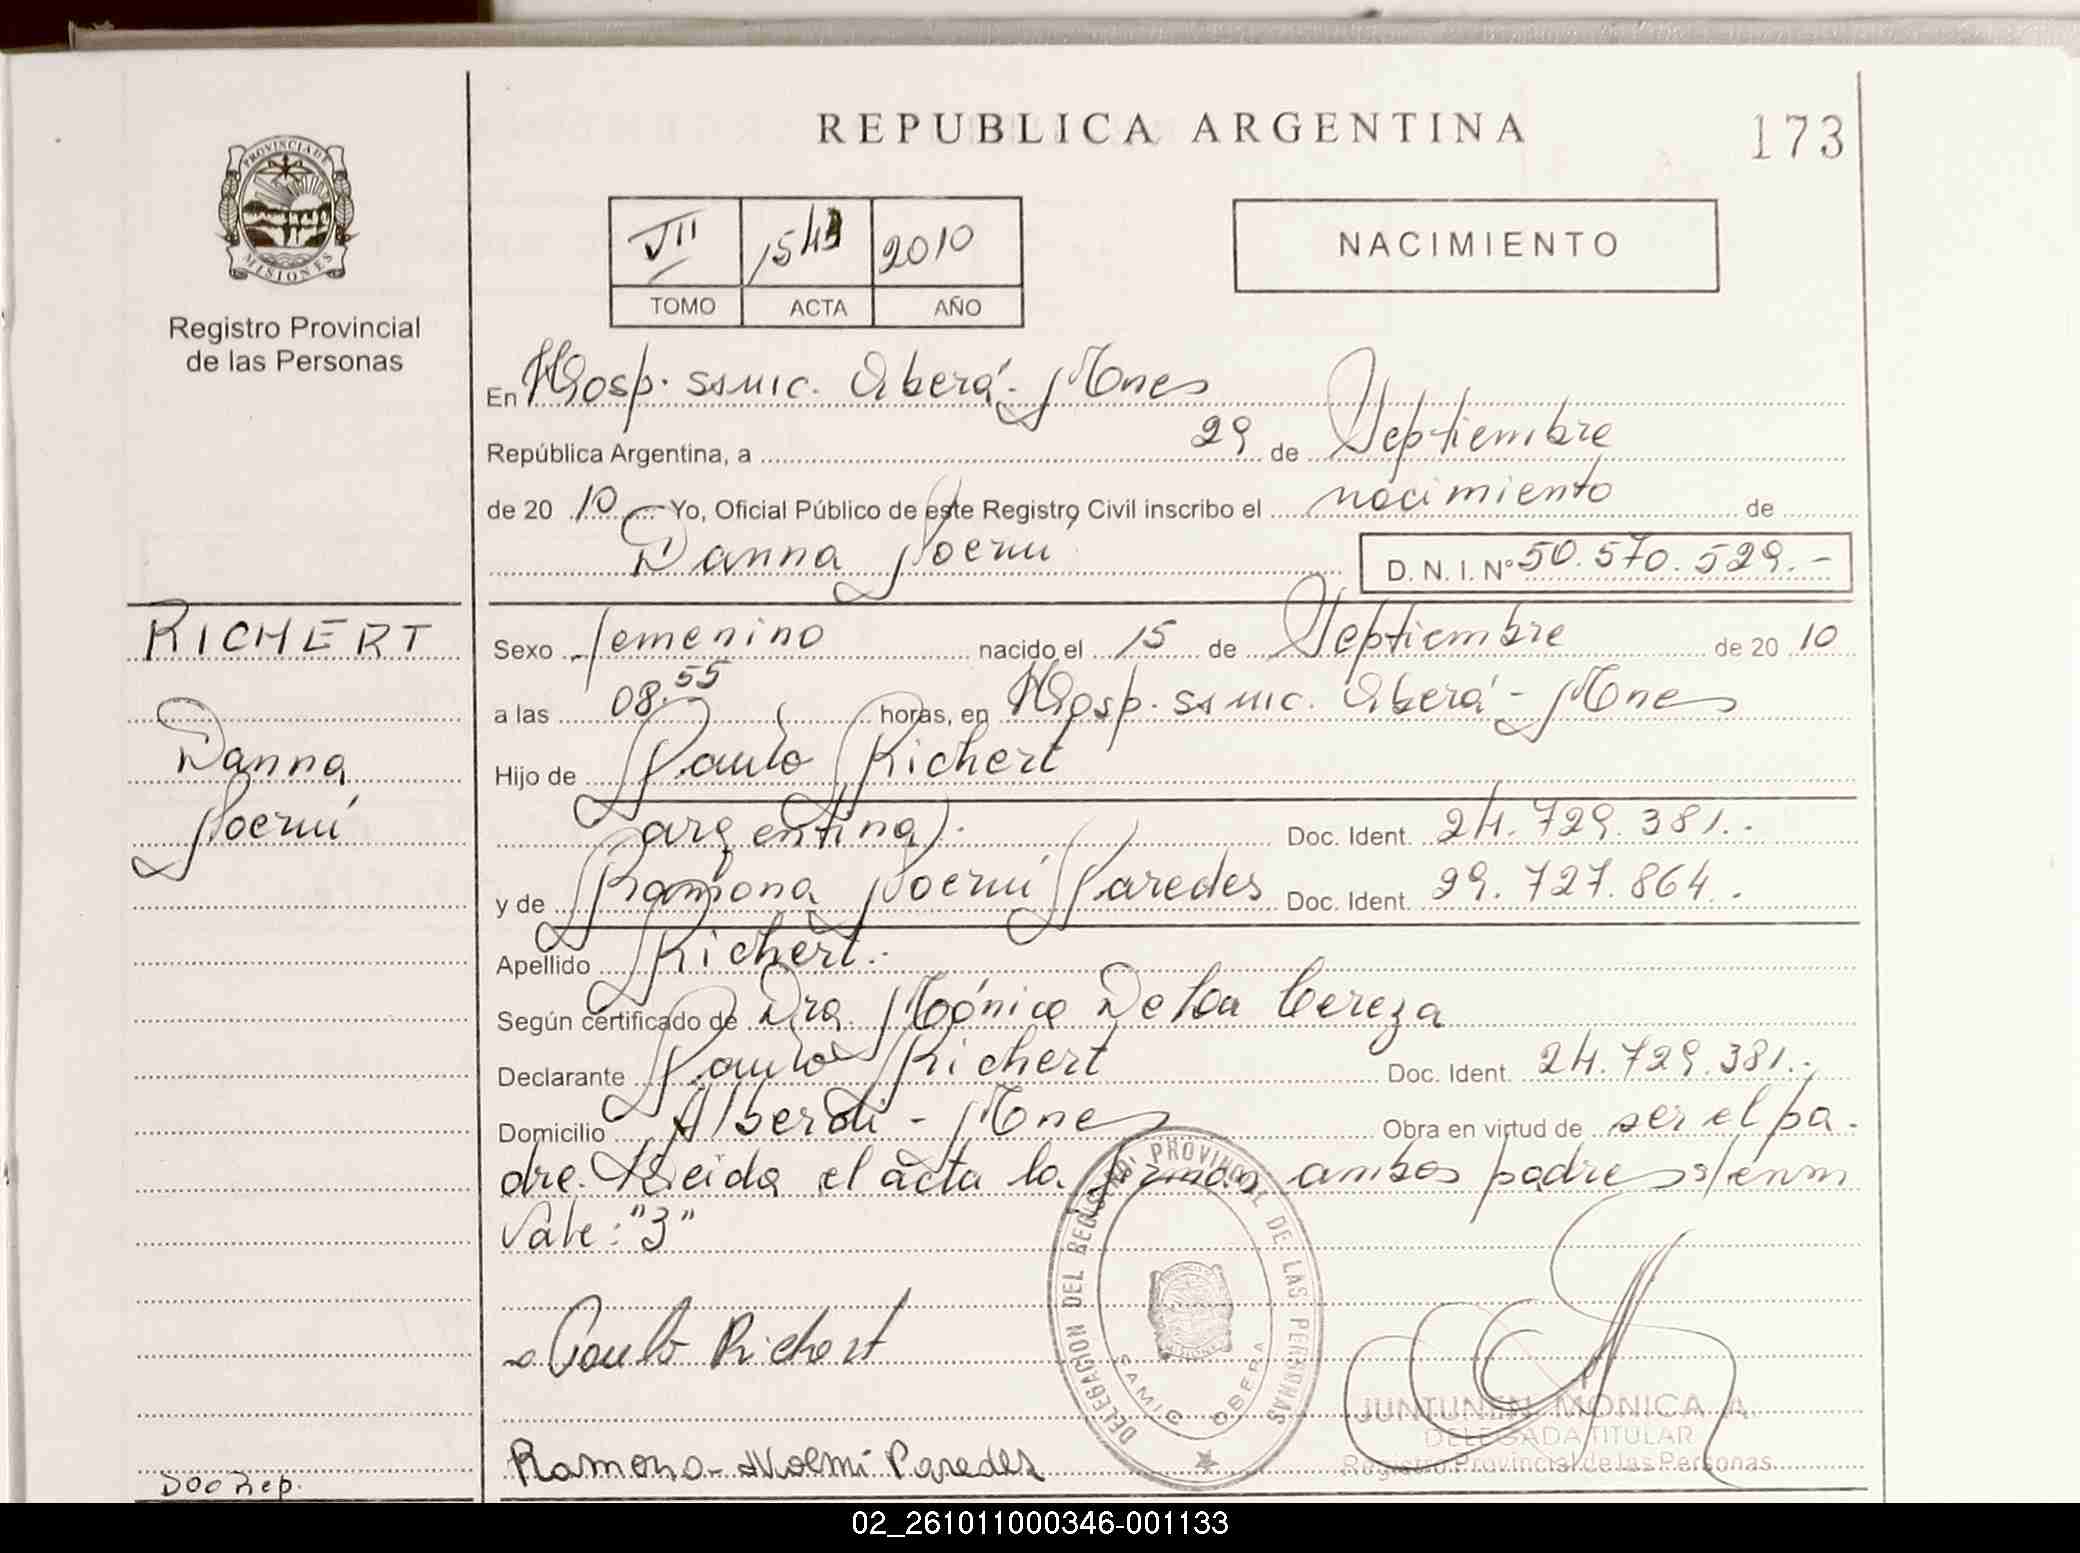 REPUBLICA ARGENTINA
173
PROVINCIA DE
MISIONES
Registro Provincial
de las Personas
VII 1543 2010
TOMO ACTA AÑO
NACIMIENTO
En Hosp. SAMIC. Oberá - Mnes
República Argentina, a 29 de Septiembre
de 20 10 Yo, Oficial Público de este Registro Civil inscribo el nacimiento de
Danna Noemí D. N. I. Nº 50.570.529.-
RICHERT
Danna
Noemí
Sexo femenino nacido el 15 de Septiembre de 20 10
a las 08.55 horas, en Hosp. SAMIC. Oberá - Mnes
Hijo de Paulo Richert
argentina). Doc. Ident. 24.729.381.-
y de Ramona Noemí Paredes Doc. Ident. 29.727.864.
Apellido Richert.-
Según certificado de Dra. Mónica De La Cereza
Declarante Paulo Richert Doc. Ident. 24.729.381.-
Domicilio Alberdi - Mnes Obra en virtud de ser el pa-
dre. Leida el acta la firman ambos padres s/enm
Vale: "3"
Paulo Richert
Ramona Noemi Paredes
DELEGACION DEL REGISTRO PROVINCIAL DE LAS PERSONAS
SAMIC OBERA
MISIONES
JUNTUNEN MONICA A.
DELEGADA TITULAR
Registro Provincial de las Personas
Doc Rep.
02_261011000346-001133